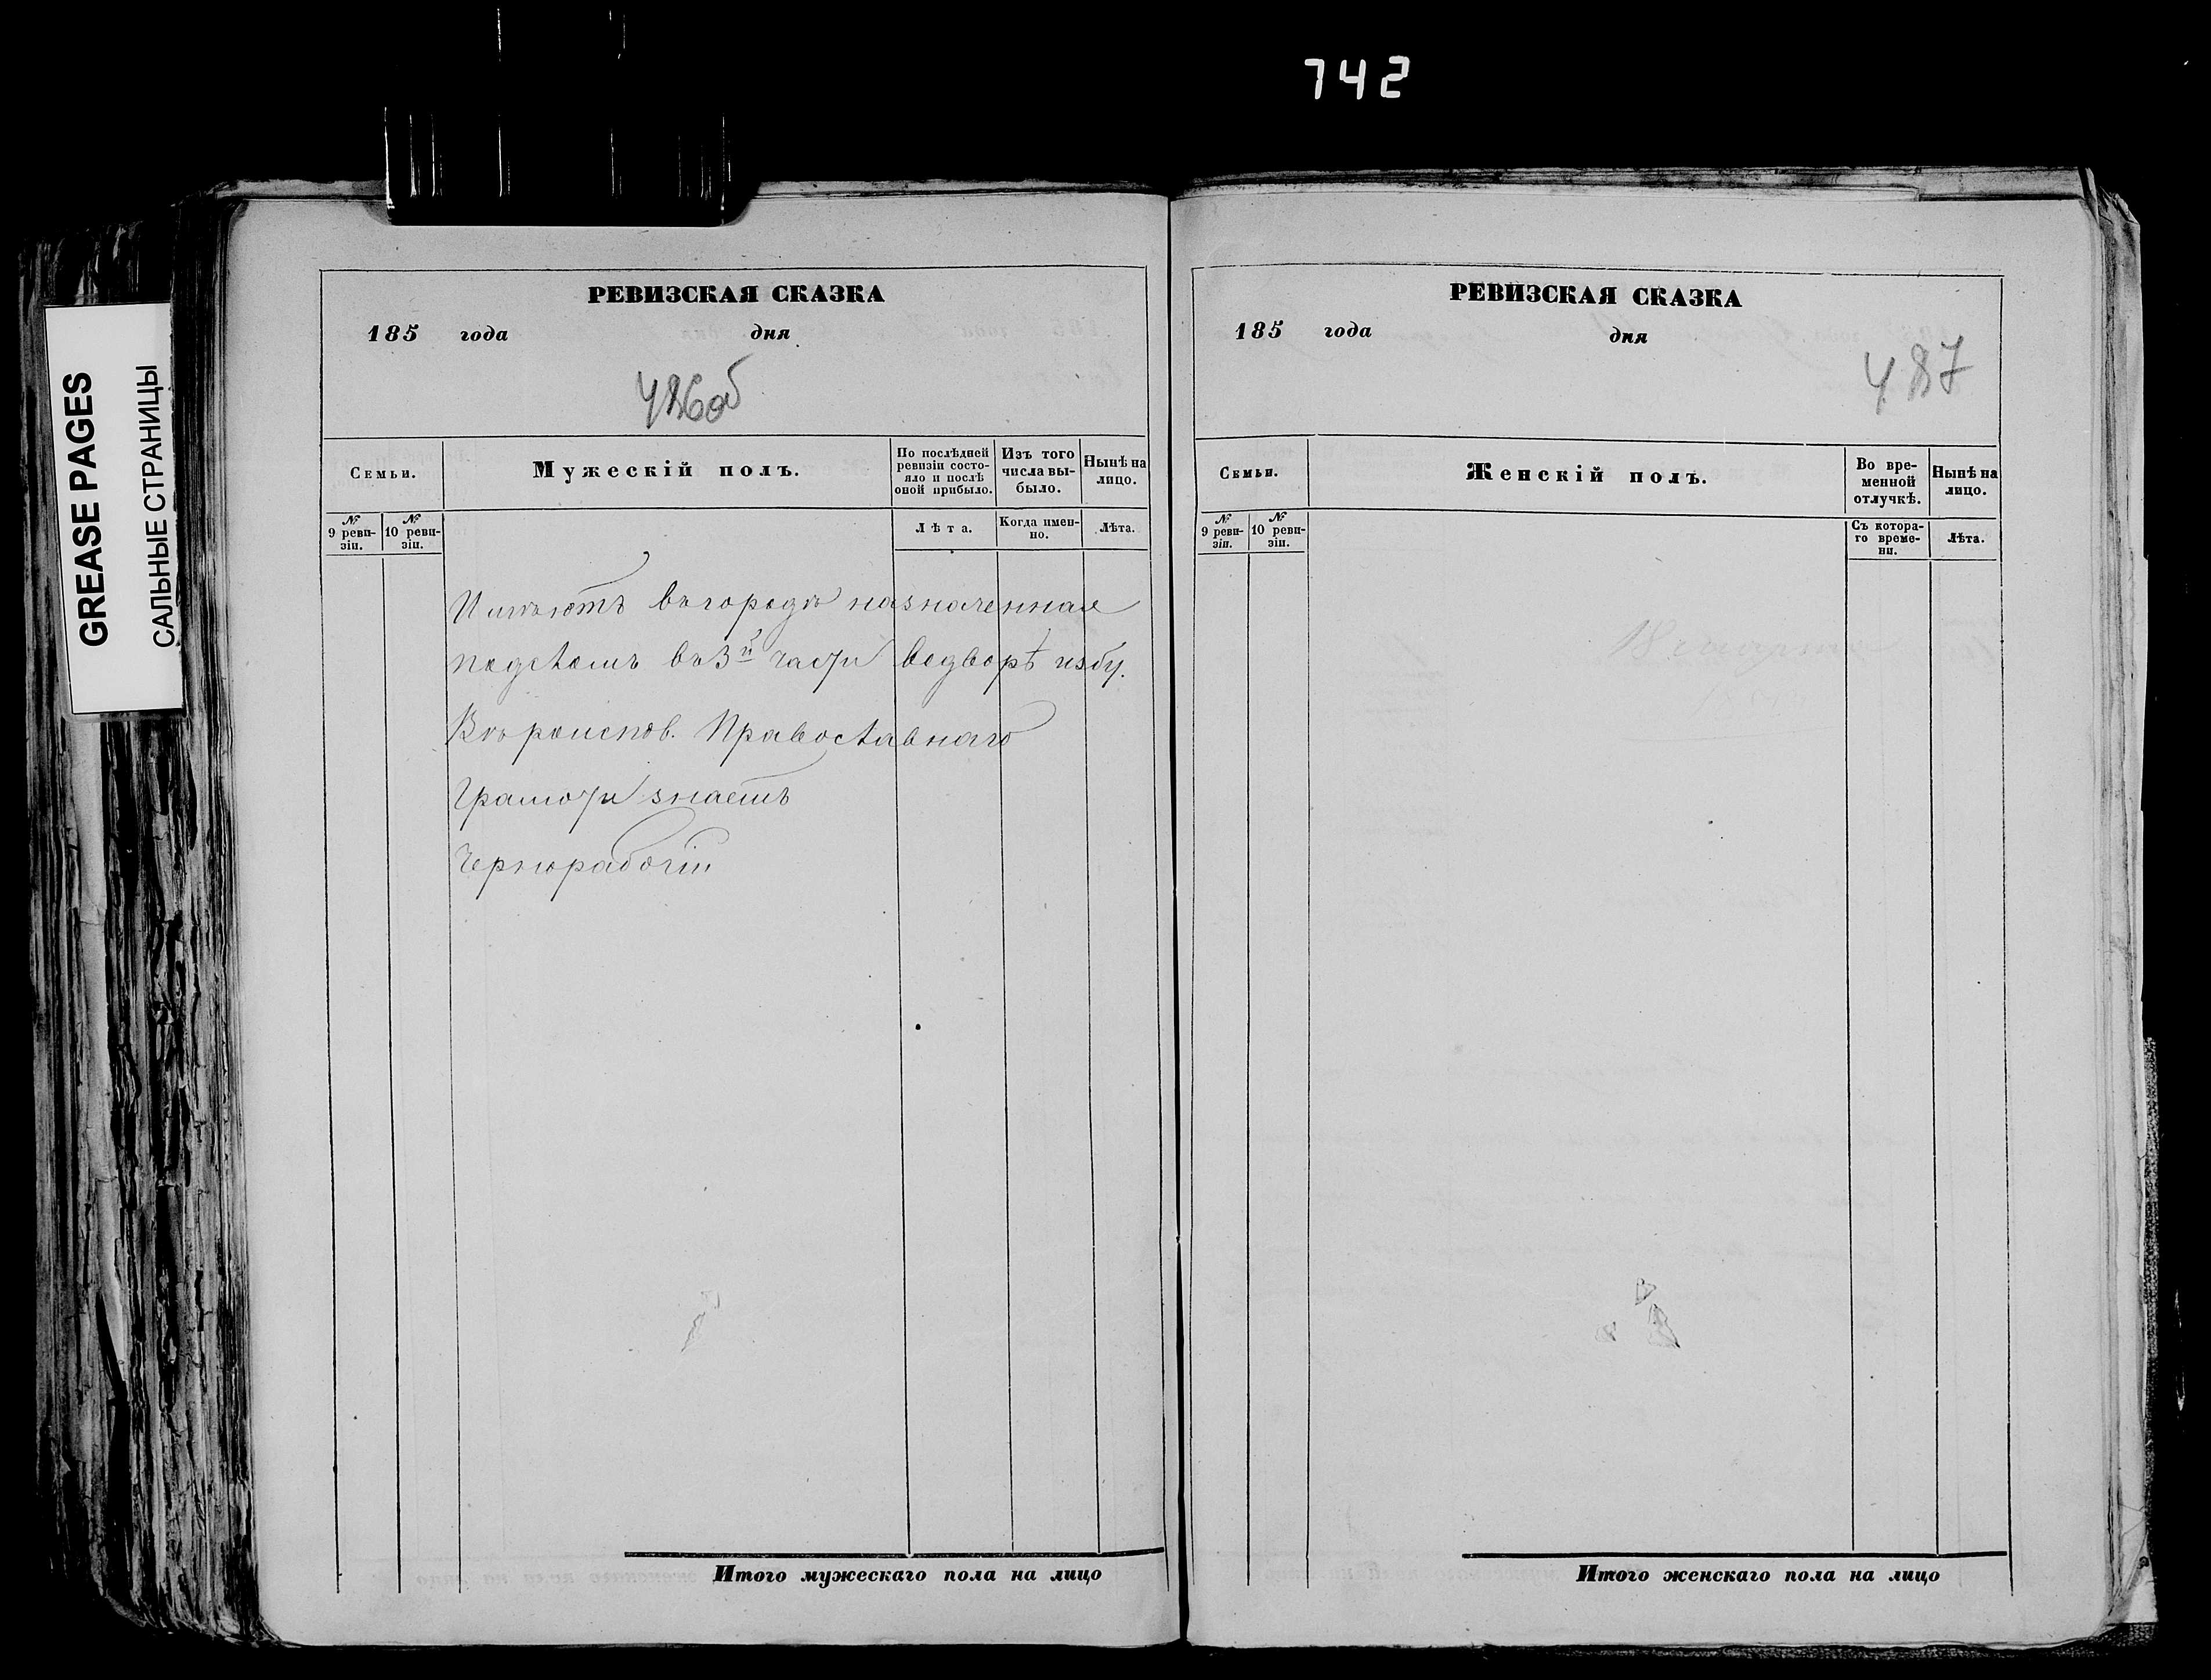 742
GREASE PAGES
САЛЬНЫЕ СТРАНИЦЫ
РЕВИЗСКАЯ СКАЗКА
185 года дня
486об
Семьи.
Мужескій полъ.
По послѣдней ревизіи состояло и послѣ оной прибыло.
Изъ того числа выбыло.
Нынѣ на лицо.
№ 9 ревизіи.
№ 10 ревизіи.
Лѣта.
Когда именно.
Лѣта.
Имѣютъ въ городѣ назначенная
подѣломъ въ 3й части водворѣ избу.
Вѣроиспов. Православнаго
Грамоти знаетъ
Чернорабочіи
Итого мужескаго пола на лицо
РЕВИЗСКАЯ СКАЗКА
185 года дня
487
Семьи.
Женскій полъ.
Во временной отлучкѣ.
Нынѣ на лицо.
№ 9 ревизіи.
№ 10 ревизіи.
Съ котораго времени.
Лѣта.
Итого женскаго пола на лицо